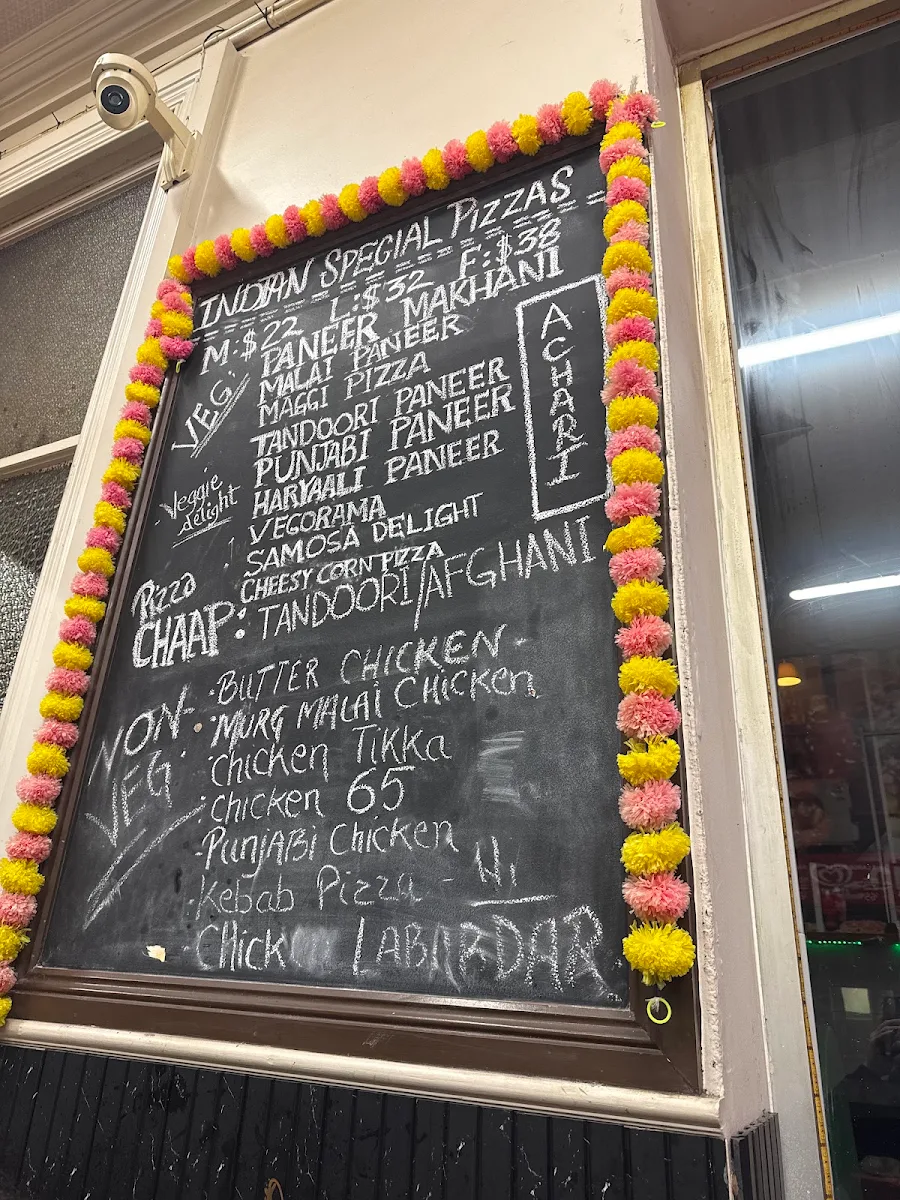 INDIAN SPECIAL PIZZAS
M:$22 L:$32 F:$38
VEG: PANEER MAKHANI
MALAI PANEER
MAGGI PIZZA
TANDOORI PANEER
PUNJABI PANEER
HARYAALI PANEER
ACHARI
Veggie
delight
VEGORAMA
SAMOSA DELIGHT
CHEESY CORN PIZZA
Pizza
CHAAP: TANDOORI/AFGHANI
NON-
VEG
·BUTTER CHICKEN-
·MURG MALAI CHICKEN
chicken Tikka
·chicken 65
-PUNJABI chicken
-Kebab Pizza -
-CHICK